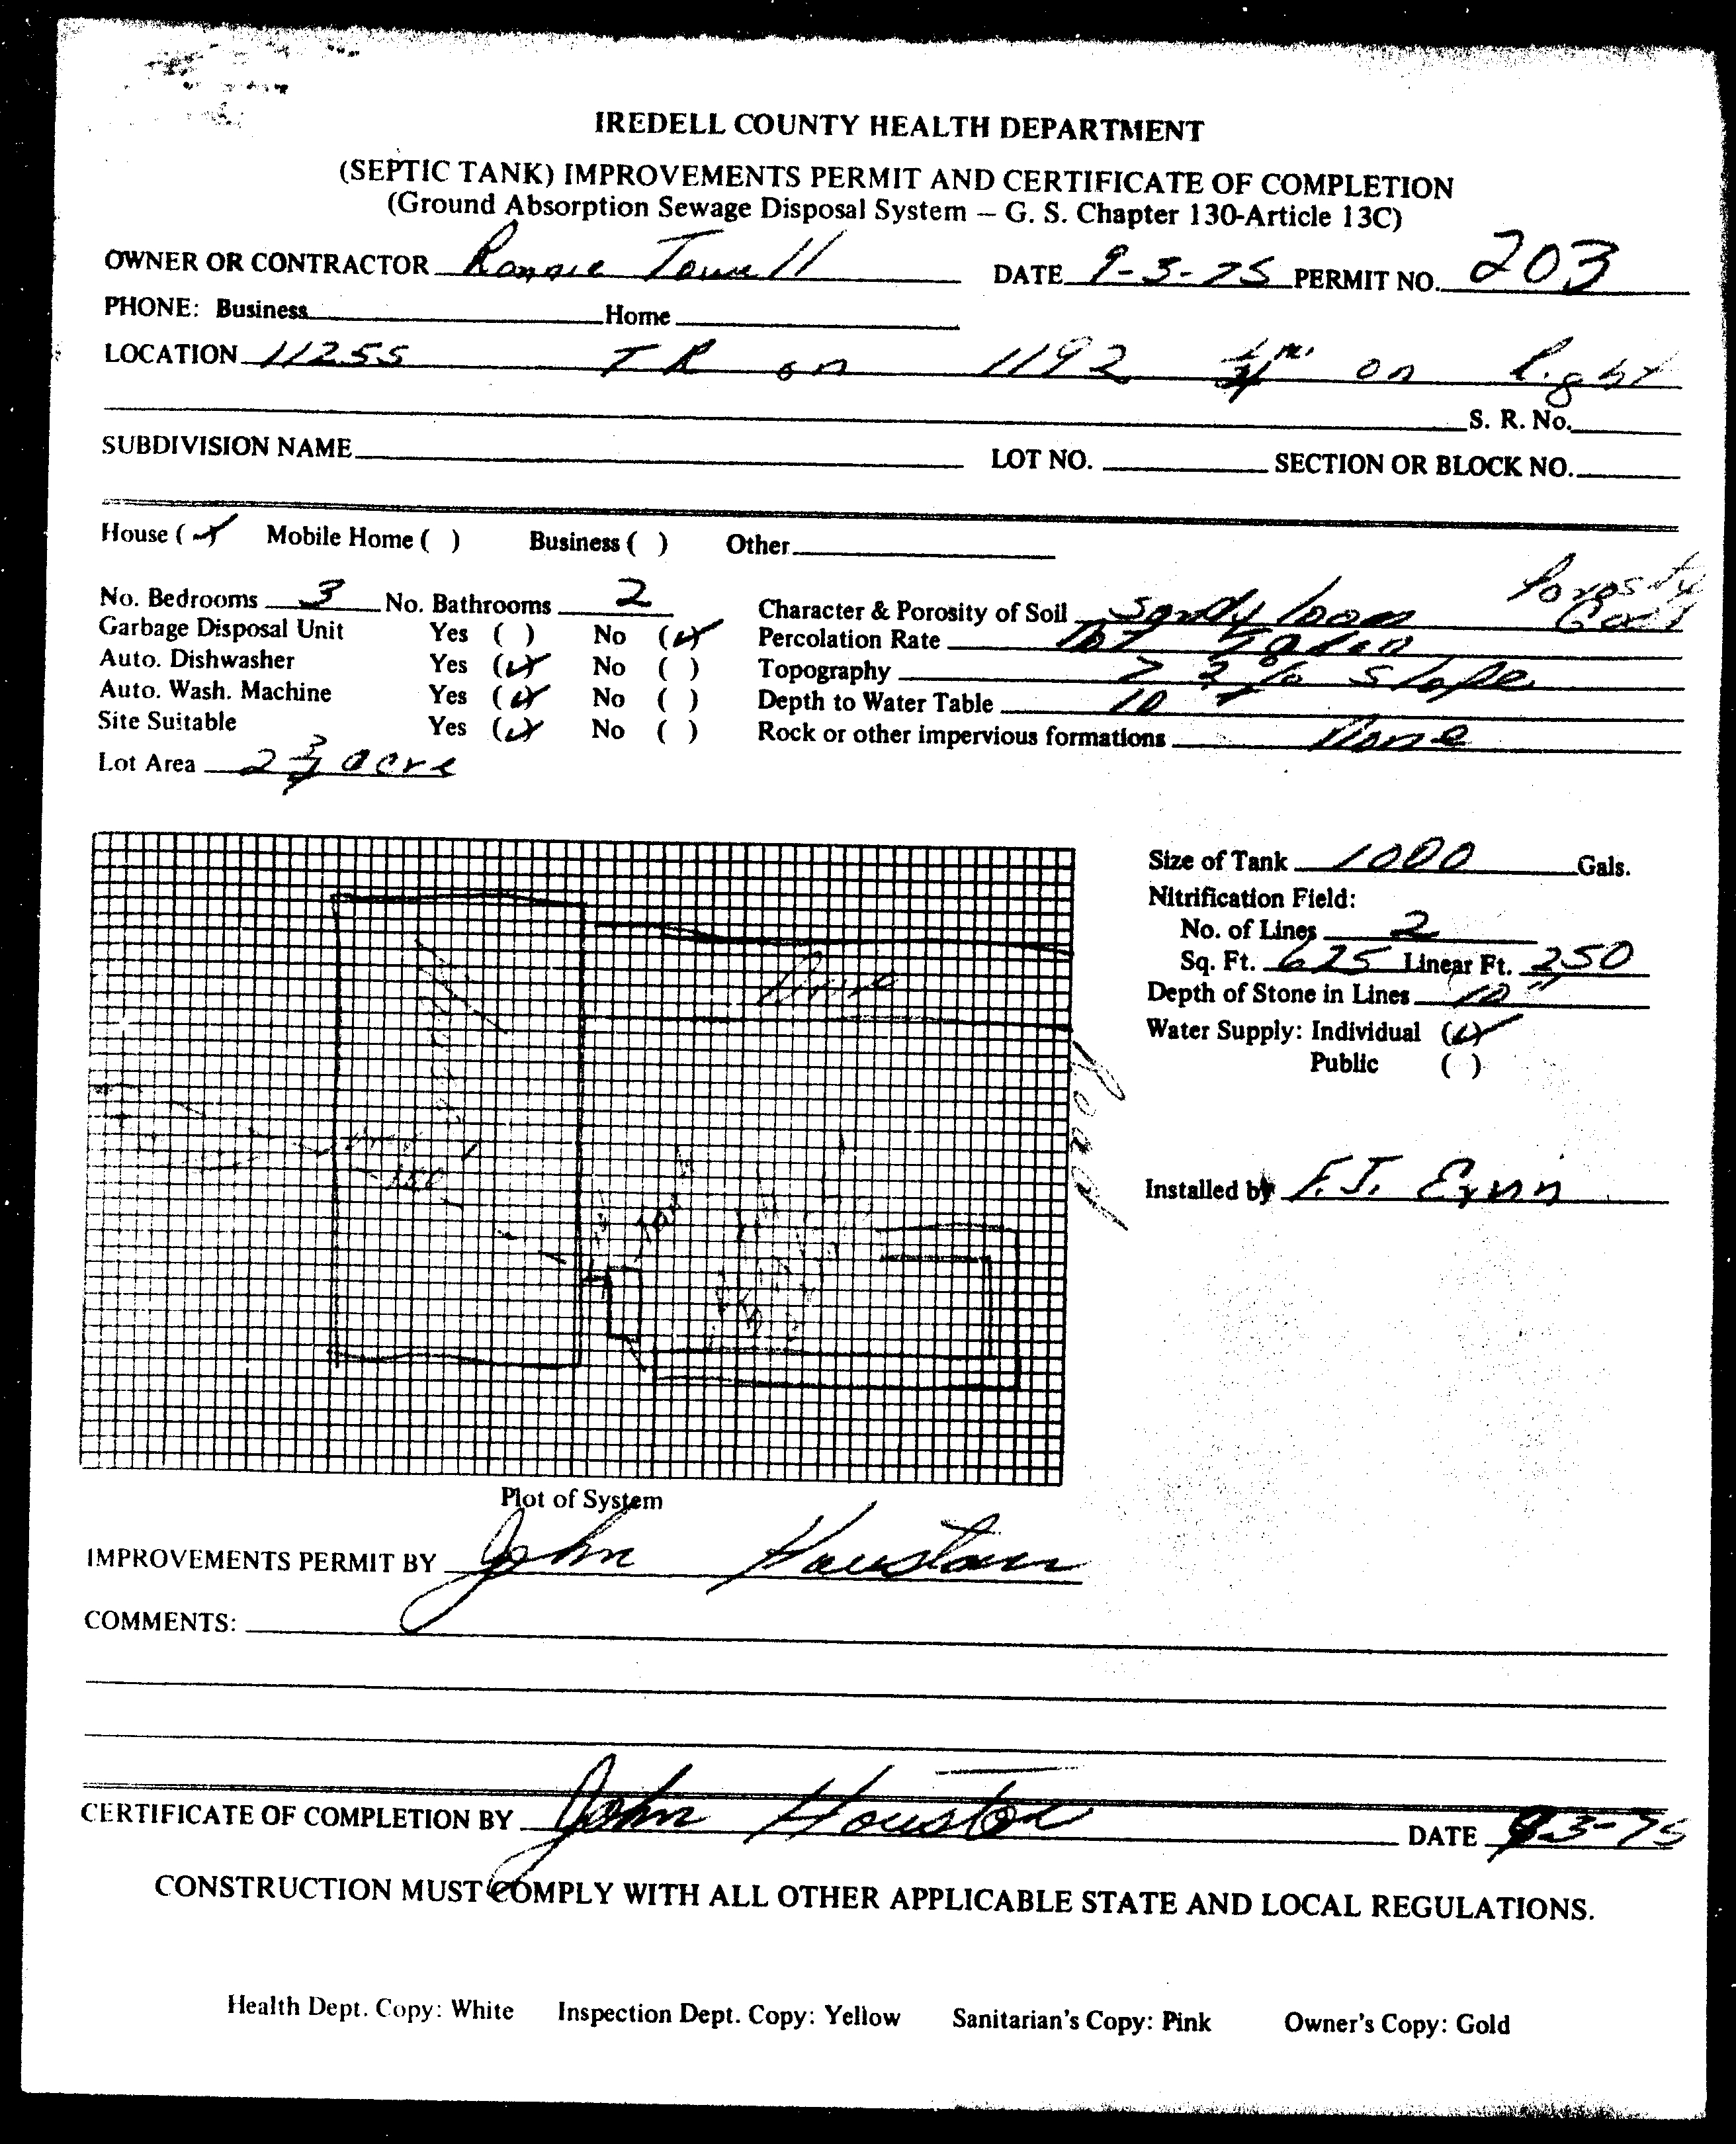 IREDELL COUNTY HEALTH DEPARTMENT
(SEPTIC TANK) IMPROVEMENTS PERMIT AND CERTIFICATE OF COMPLETION
(Ground Absorption Sewage Disposal System – G. S. Chapter 130-Article 13C)
OWNER OR CONTRACTOR Ronnie Towell DATE 9-3-75 PERMIT NO. 203
PHONE: Business Home
LOCATION 11255 TR on 1192 on Right
S. R. No.
SUBDIVISION NAME LOT NO. SECTION OR BLOCK NO.
House (✓) Mobile Home ( ) Business ( ) Other
No. Bedrooms 3 No. Bathrooms 2 Character & Porosity of Soil Sandy loam Porosity Good
Garbage Disposal Unit Yes ( ) No (✓) Percolation Rate Not
Auto. Dishwasher Yes (✓) No ( ) Topography > 2% slope
Auto. Wash. Machine Yes (✓) No ( ) Depth to Water Table 10
Site Suitable Yes (✓) No ( ) Rock or other impervious formations None
Lot Area 2 3/4 acre
Size of Tank 1000 Gals.
Nitrification Field:
No. of Lines 2
Sq. Ft. 625 Linear Ft. 250
Depth of Stone in Lines 10"
Water Supply: Individual (✓)
Public ( )
Drive
Road
Installed by F.J.
Plot of System
IMPROVEMENTS PERMIT BY John Houston
COMMENTS:
CERTIFICATE OF COMPLETION BY John Houston DATE 9-3-75
CONSTRUCTION MUST COMPLY WITH ALL OTHER APPLICABLE STATE AND LOCAL REGULATIONS.
Health Dept. Copy: White Inspection Dept. Copy: Yellow Sanitarian's Copy: Pink Owner's Copy: Gold